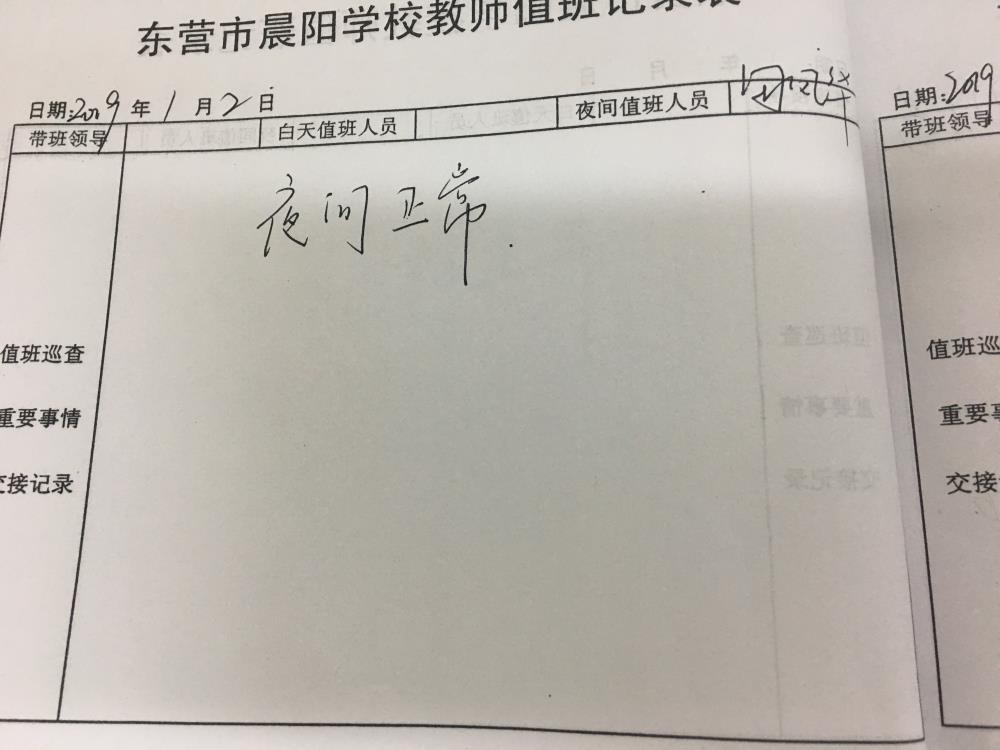 东营市晨阳学校教师值班记录表
日期:2019年1月2日
带班领导 白天值班人员 夜间值班人员
夜间正常.
值班巡查
重要事情
交接记录
日期:2019
带班领导
值班巡
重要事
交接